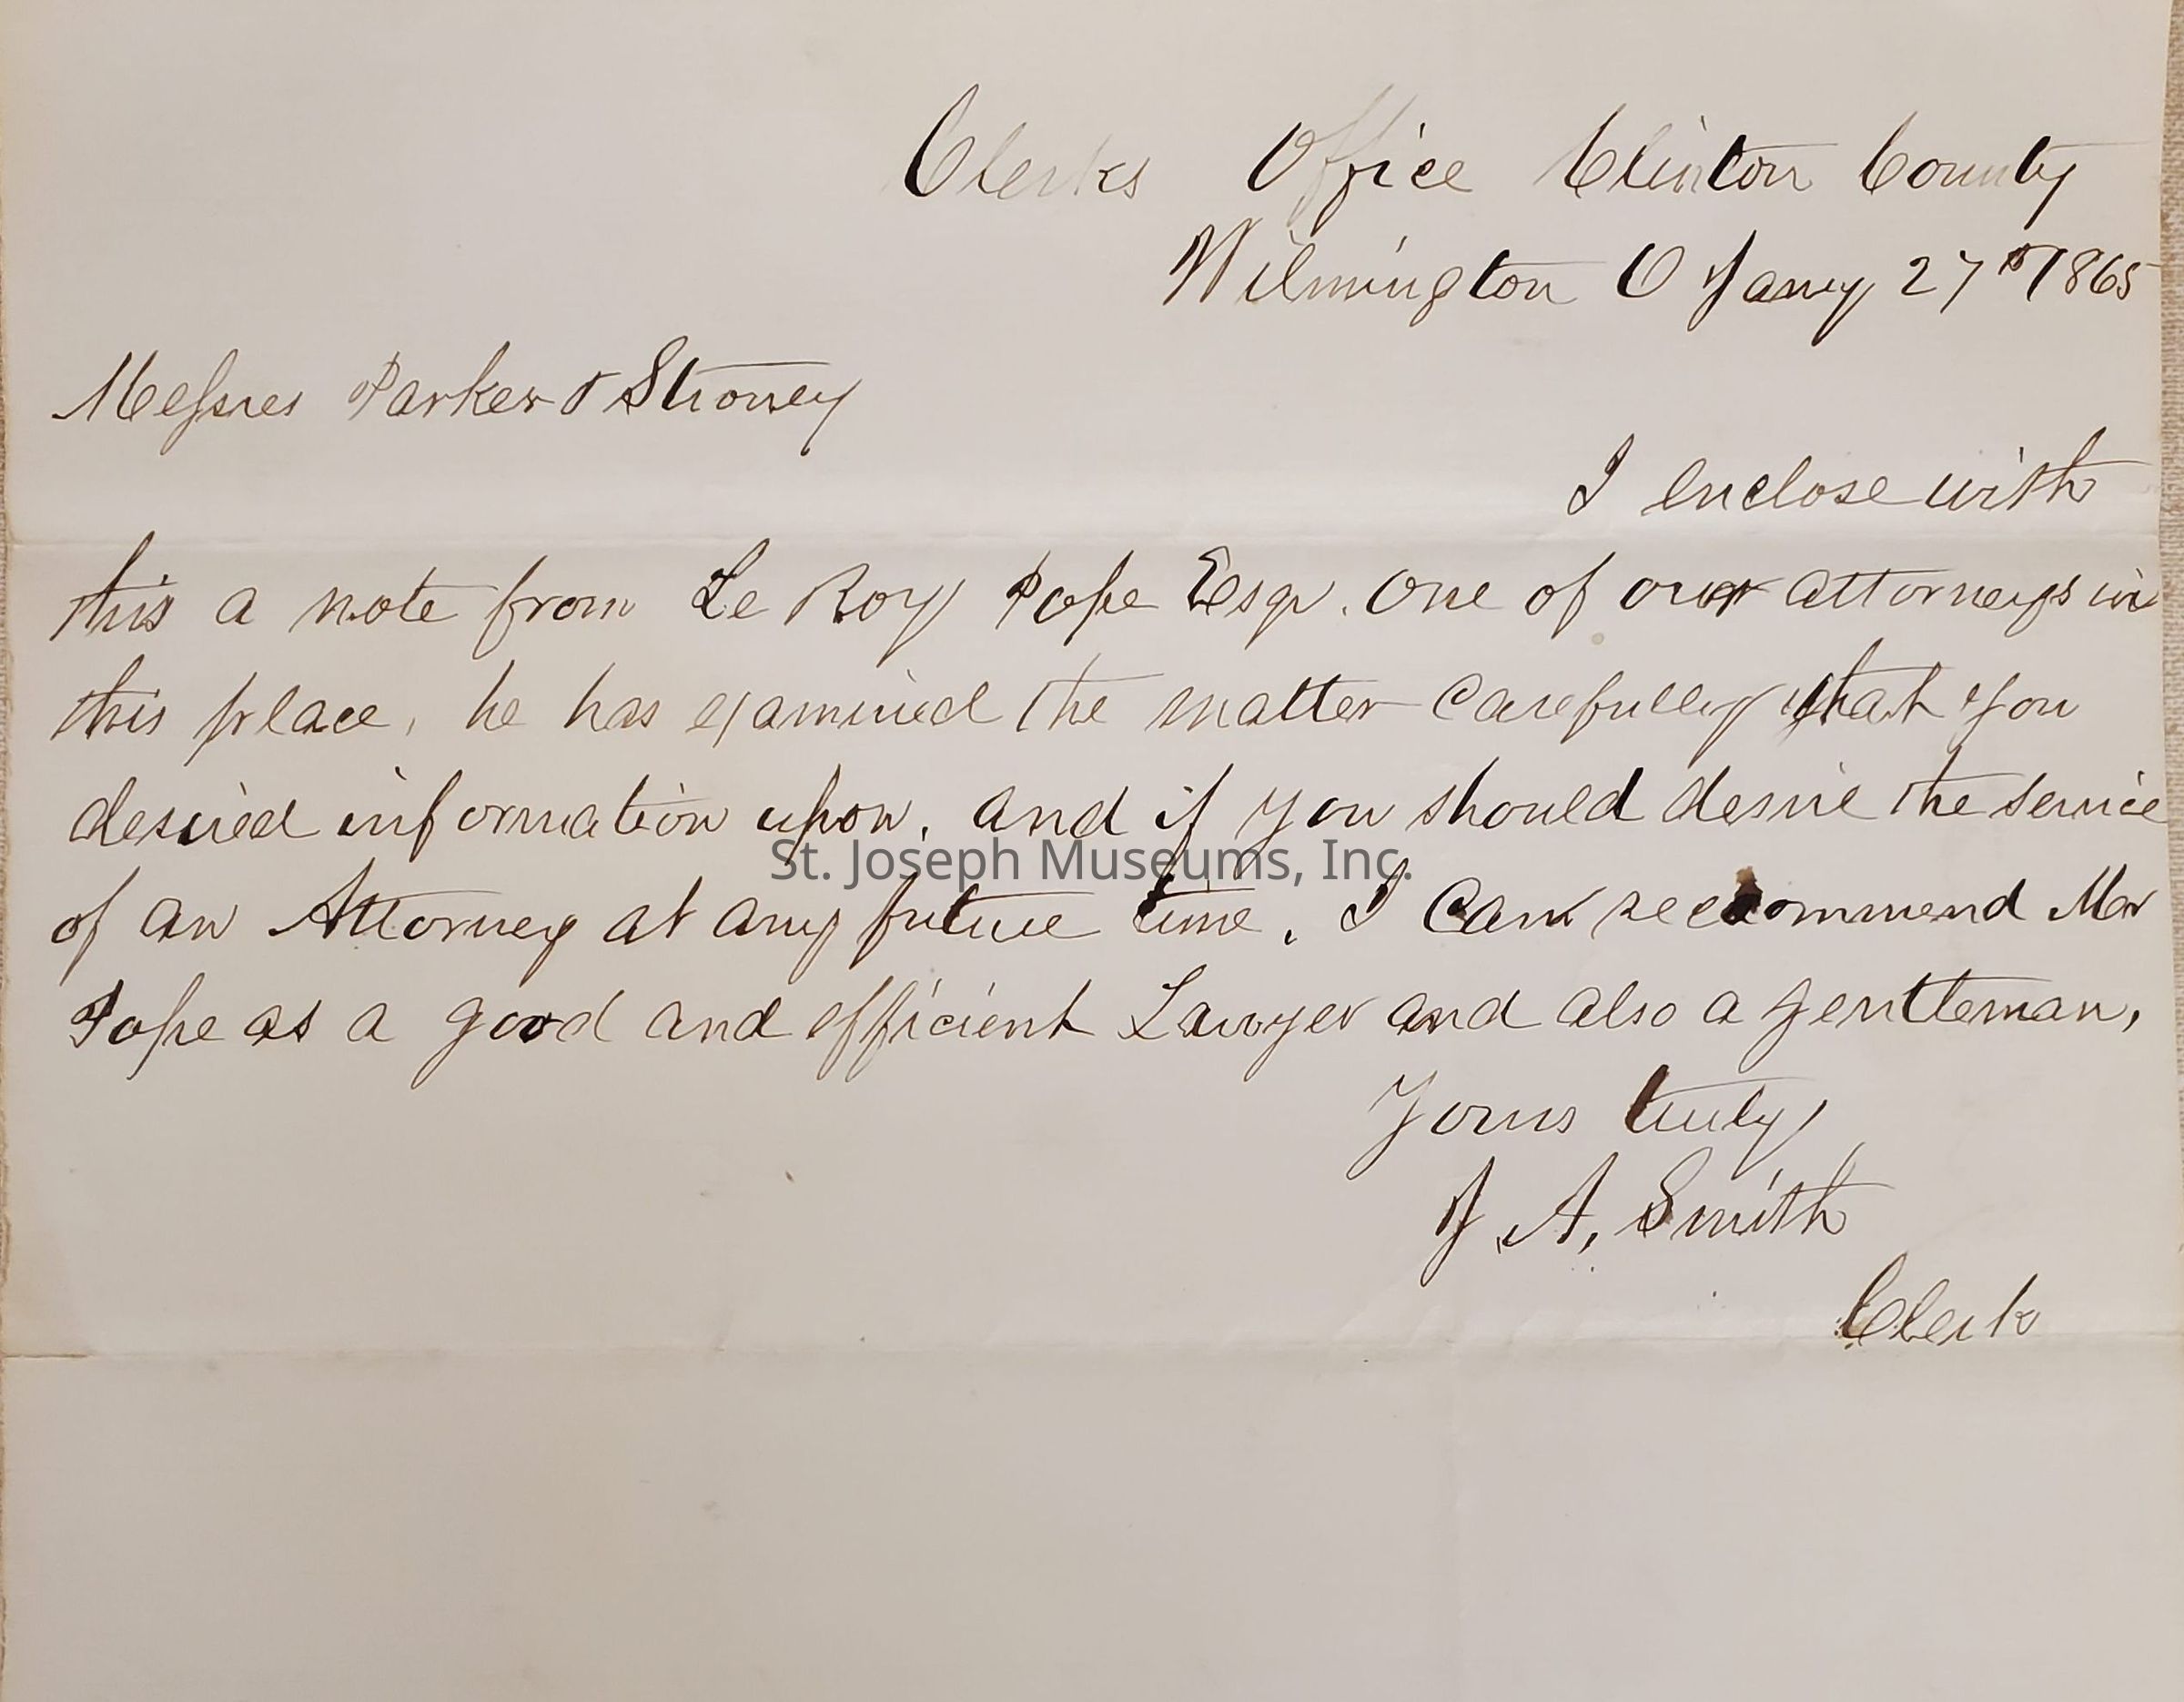 Clerks Office Clinton County
Wilmington O Jany 27th 1865
Messres Parker & Stroney
I enclose with
this a note from Le Roy Pope Esqr. One of our attorneys in
this place, he has examined the matter carefully that you
desired information upon, and if you should desire the service
of an Attorney at any future time, I can recommend Mr
St. Joseph Museums, Inc.
Pope as a good and efficient Lawyer and also a gentleman,
Yours truly,
J. A. Smith
Clerk